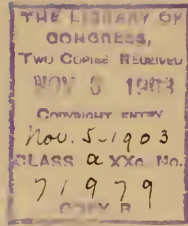 THE LIBRARY OF
CONGRESS,
TWO COPIES RECEIVED
NOV 5 1903
COPYRIGHT ENTRY
Nov. 5-1903
CLASS a XXc. No.
71979
COPY B